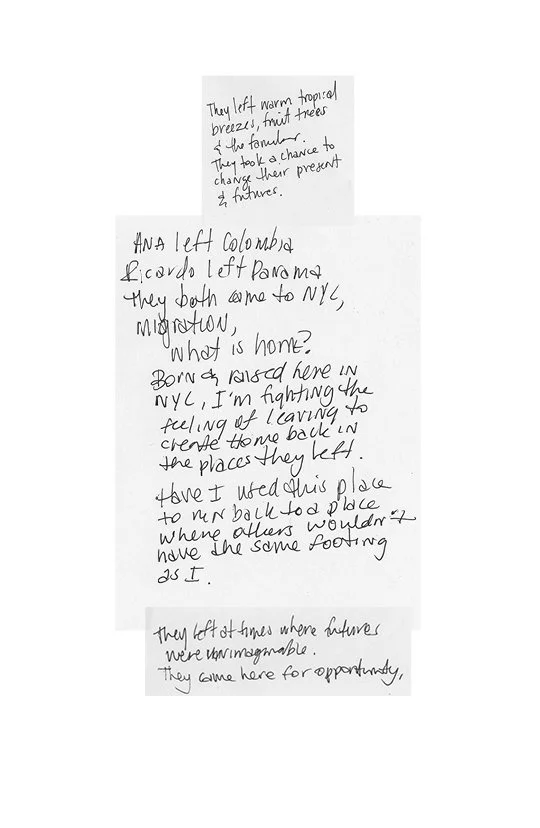 They left warm tropical
breezes, fruit trees
& the familiar.
They took a chance to
change their present
& futures.
ANA left Colombia
Ricardo left Panama
they both came to NYC,
migration,
what is home?
Born & raised here in
NYC, I'm fighting the
feeling of leaving to
create home back in
the places they left.
Have I used this place
to run back to a place
where others wouldn't
have the same footing
as I.
They left at times where futures
were unimaginable.
They came here for opportunity,